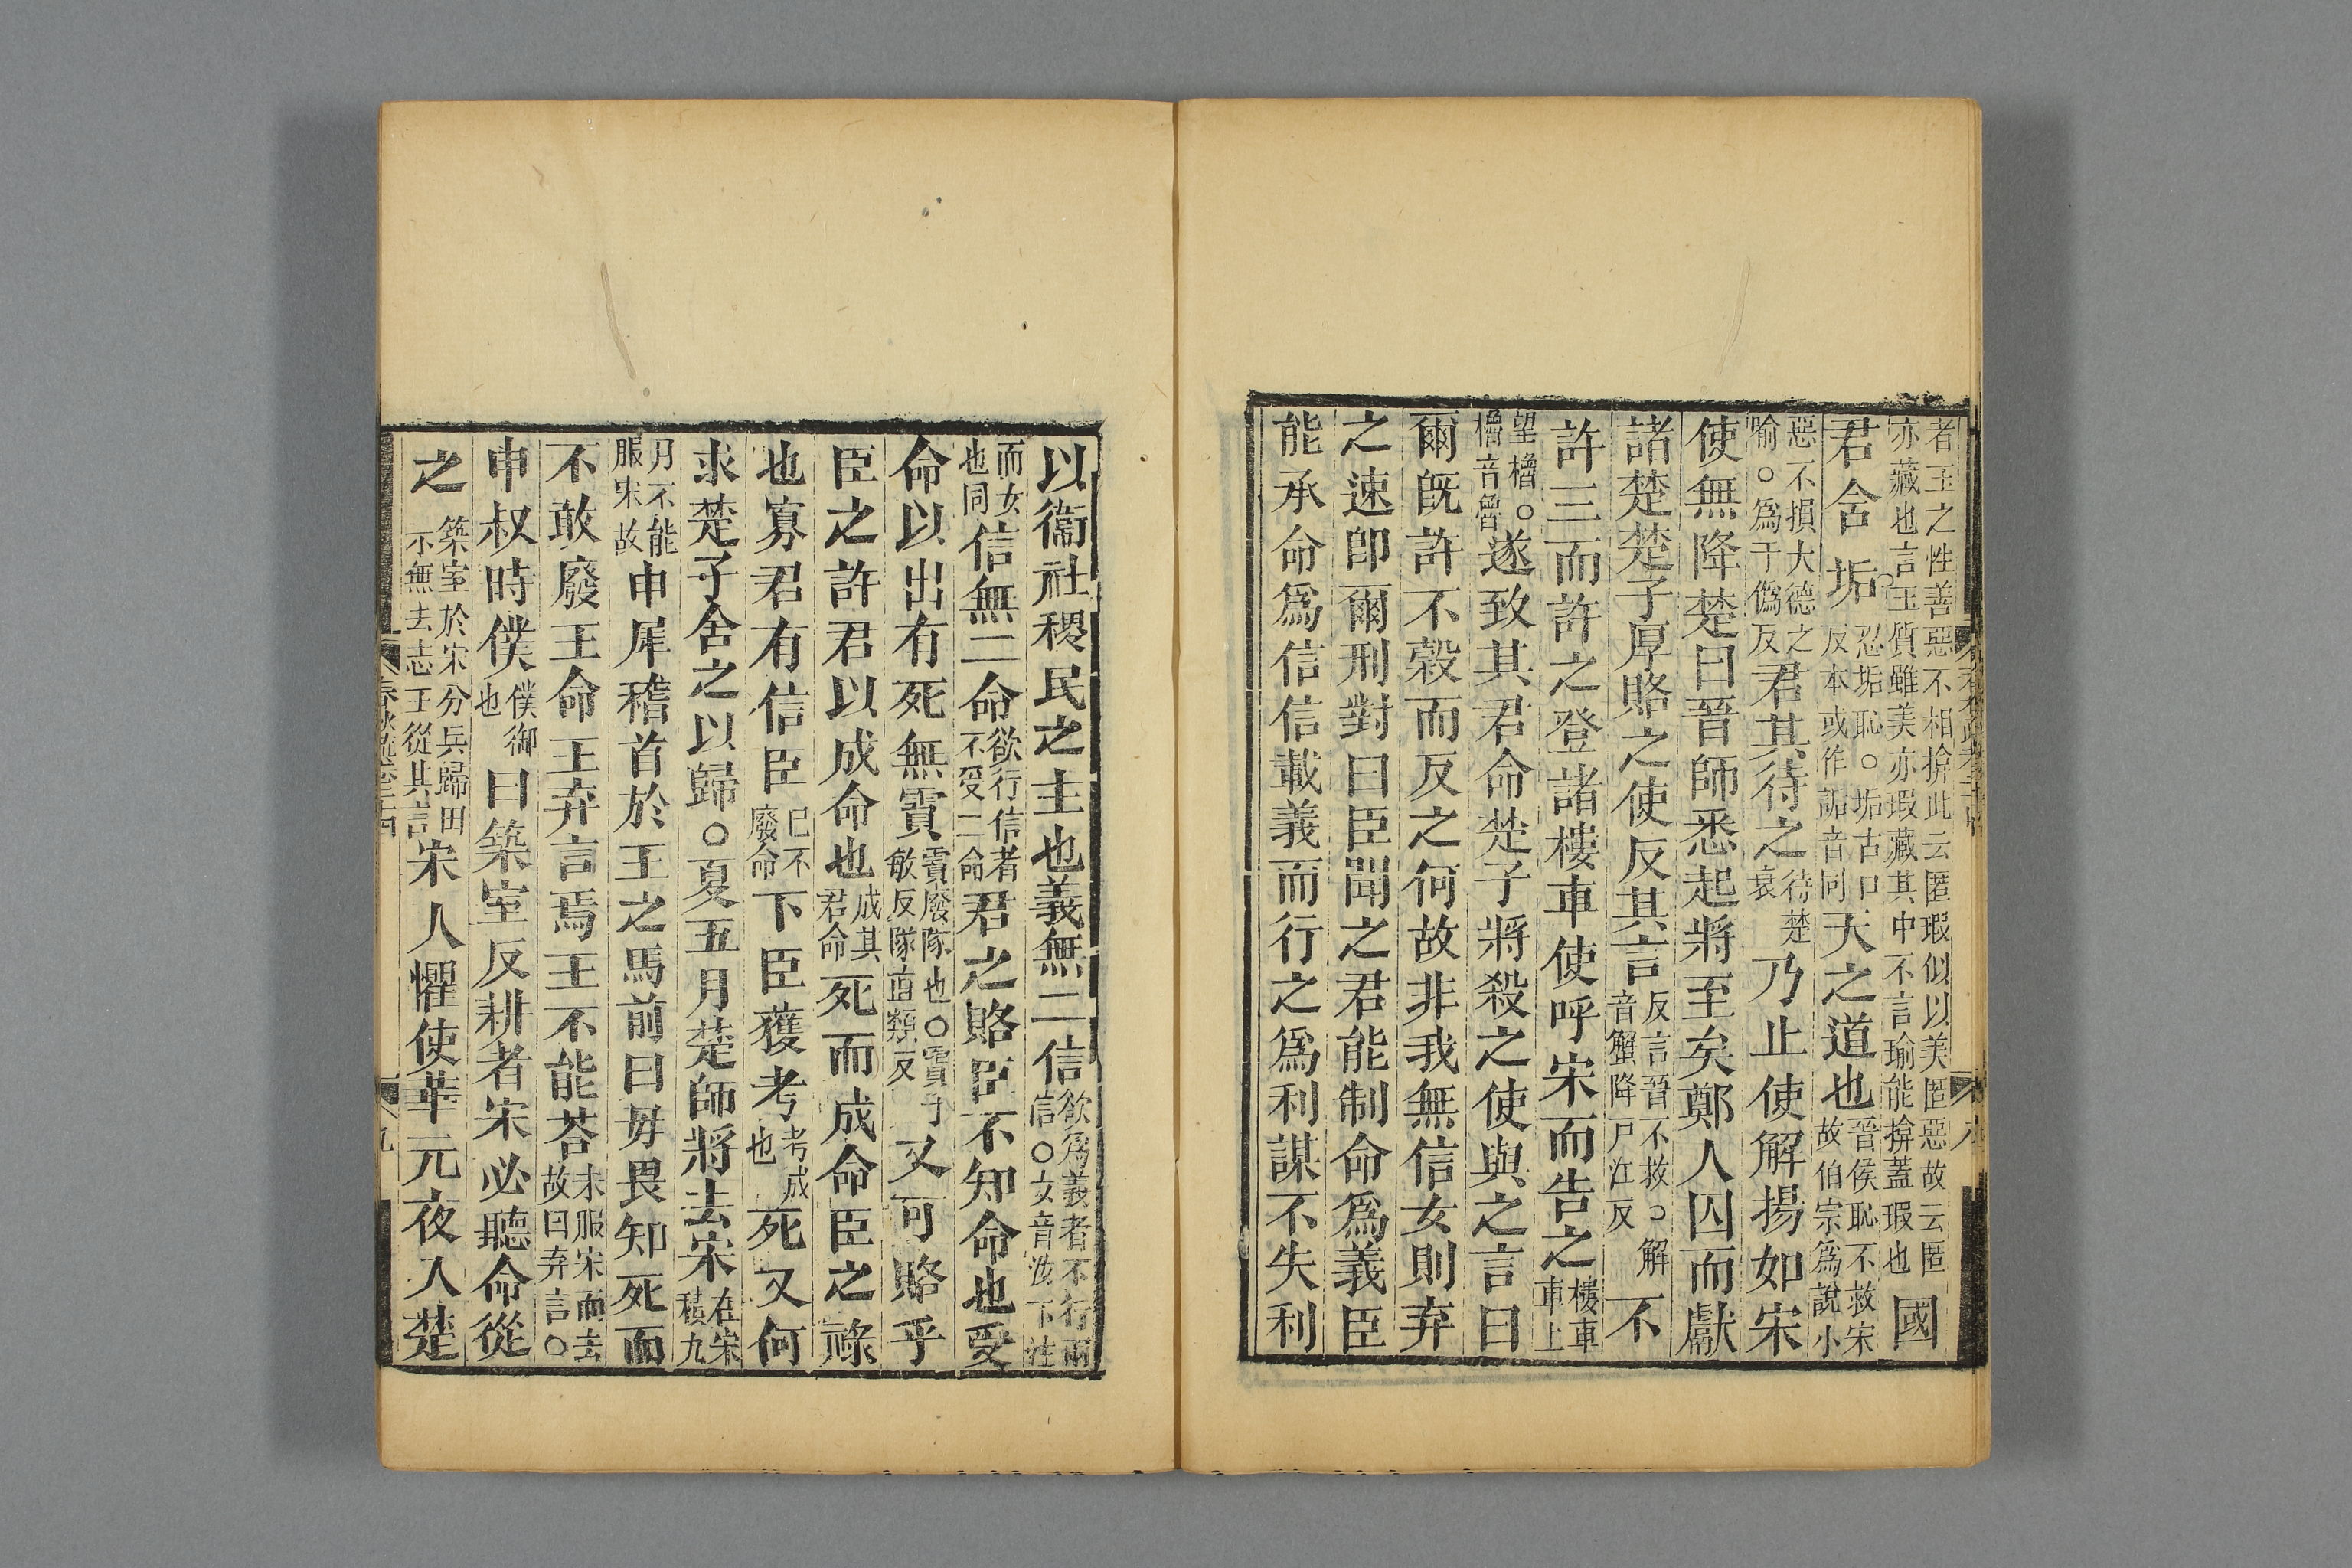 者玉之性善惡不相揜此云匿瑕似以美匿惡故云匿
亦藏也言玉質雖美亦瑕藏其中不言瑜能揜蓋瑕也國
君含垢忍垢恥○垢古口反本或作詬音同天之道也晉侯恥不救宋故伯宗爲說小
惡不損大德之喻○爲于僞反君其待之待楚衰乃止使解揚如宋
使無降楚曰晉師悉起將至矣鄭人囚而獻
諸楚楚子厚賂之使反其言反言晉不救○解音蟹降戸江反不
許三而許之登諸樓車使呼宋而告之樓車車上
望櫓○櫓音魯遂致其君命楚子將殺之使與之言曰
爾旣許不榖而反之何故非我無信女則弃
之速卽爾刑對曰臣聞之君能制命爲義臣
能承命爲信信載義而行之爲利謀不失利
以衞社稷民之主也義無二信欲爲義者不行兩信○女音汝下注
而女也同信無二命欲行信者不受二命君之賂臣不知命也受
命以出有死無霣霣廢隊也○霣于敏反隊直類反又可賂乎
臣之許君以成命也成其君命死而成命臣之祿
也寡君有信臣已不廢命下臣獲考考成也死又何
求楚子舍之以歸○夏五月楚師將去宋在宋積九
月不能服宋故申犀稽首於王之馬前曰毋畏知死而
不敢廢王命王弃言焉王不能荅未服宋而去故曰弃言○
申叔時僕僕御也曰築室反耕者宋必聽命從
之築室於宋分兵歸田示無去志王從其言宋人懼使華元夜入楚